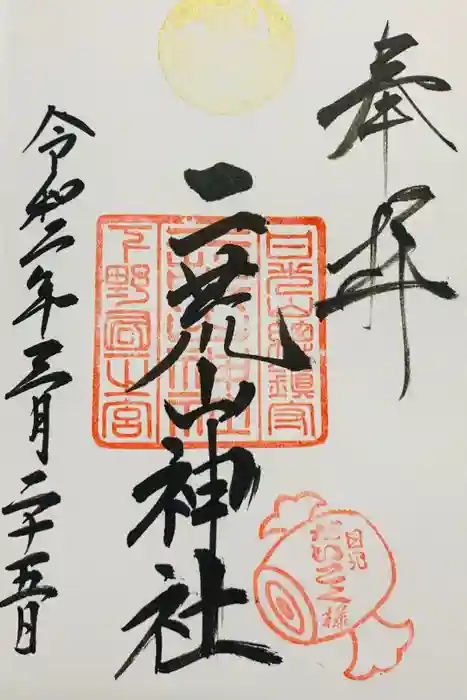 奉拝
日光山総鎮守
二荒山神社
二荒山神社
下野国一宮
日光
だいこく様
令和二年三月二十五日